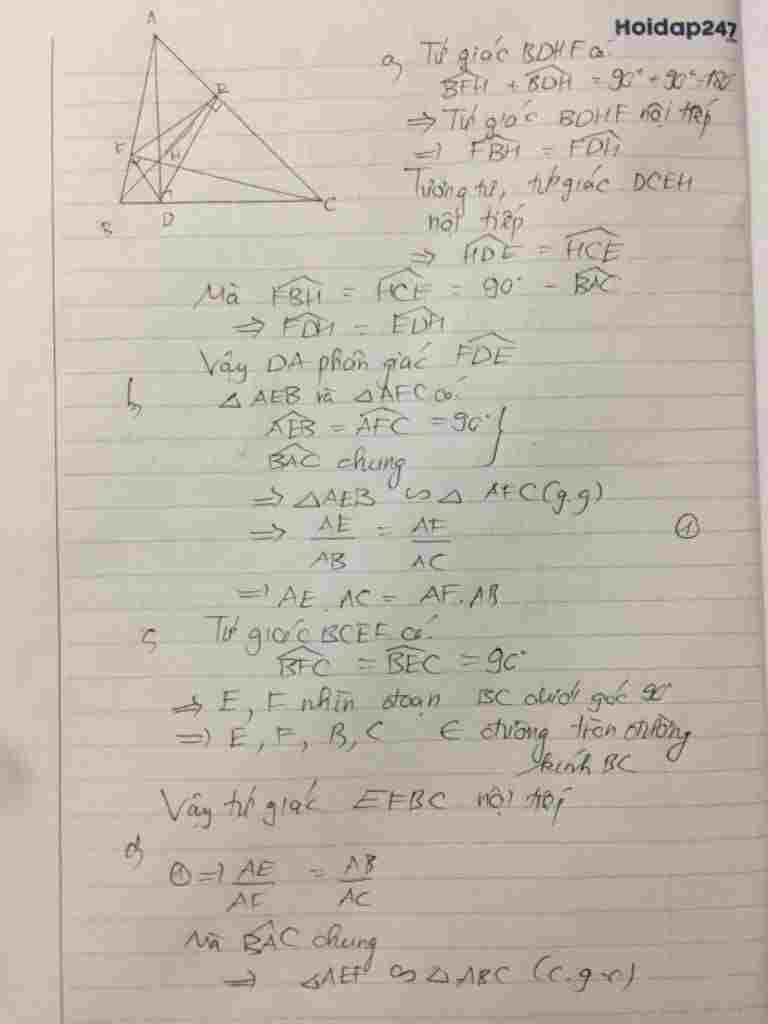 Hoidap247
A
E
F
H
B
D
C
a, Tứ giác BDHF có
BFH + BDH = 90° + 90° = 180°
=> Tứ giác BDHF nội tiếp
=> FBH = FDH
Tương tự, tứ giác DCEH
nội tiếp
=> HDE = HCE
Mà FBH = HCE = 90° - BAC
=> FDH = EDH
Vậy DA phân giác FDE
b, △ AEB và △ AFC có
AEB = AFC = 90° }
BAC chung
=> △ AEB ∽ △ AFC (g.g)
=> AE/AB = AF/AC ①
=> AE . AC = AF . AB
c, Tứ giác BCEF có
BFC = BEC = 90°
=> E, F nhìn đoạn BC dưới góc 90°
=> E, F, B, C ∈ đường tròn đường
kính BC
Vậy tứ giác EFBC nội tiếp
d,
① => AE/AF = AB/AC
Mà BAC chung
=> △AEF ∽ △ ABC (c.g.c)